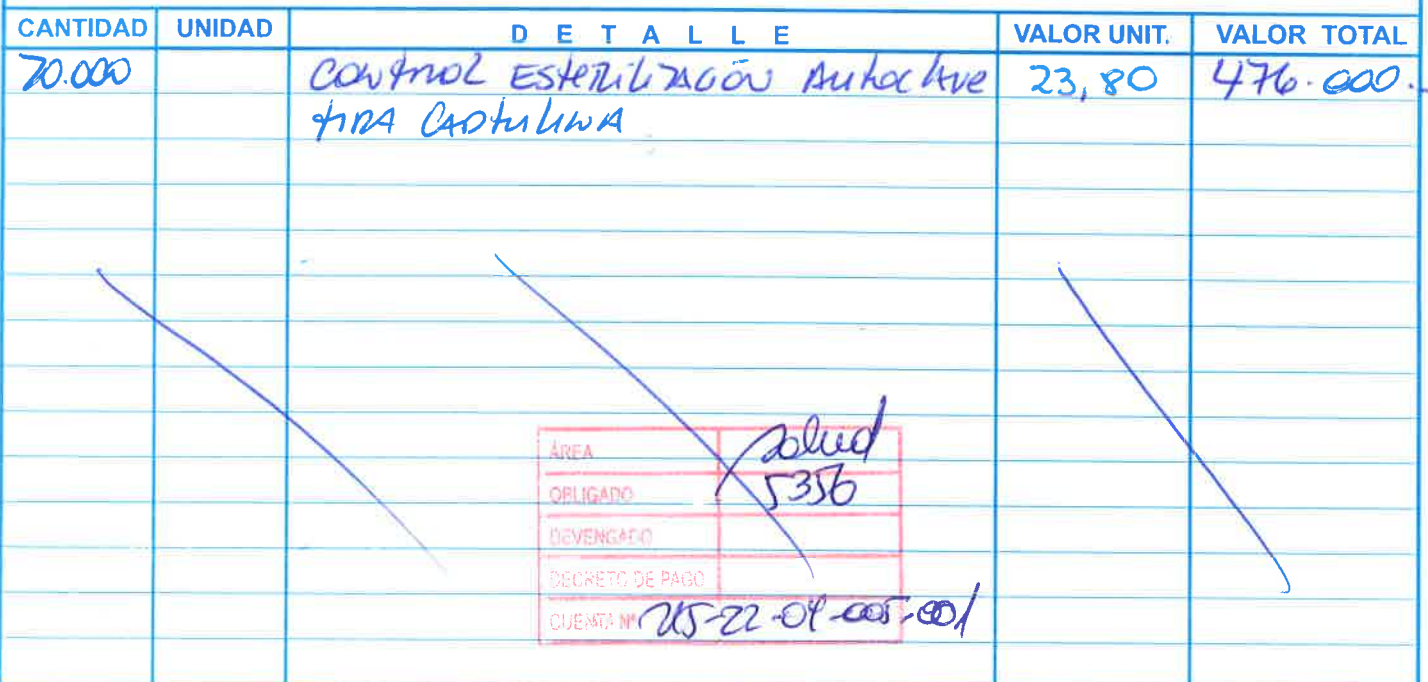 CANTIDAD UNIDAD DETALLE VALOR UNIT. VALOR TOTAL
20.000 Control Esterilización Autoclave 23,80 476.000.-
tira Cartulina
ÁREA Salud
OBLIGADO 5356
DEVENGADO
DECRETO DE PAGO
CUENTA Nº 215-22-04-005-001